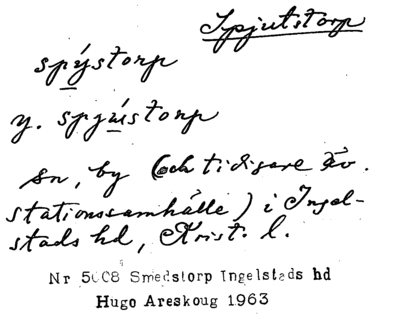 Spjutstorp
spýstorp
y. spjústorp
sn, by (och tidigare äv.
stationssamhälle) i Ingel-
stads hd, Krist. l.
Nr 5008 Smedstorp Ingelstads hd
Hugo Areskoug 1963